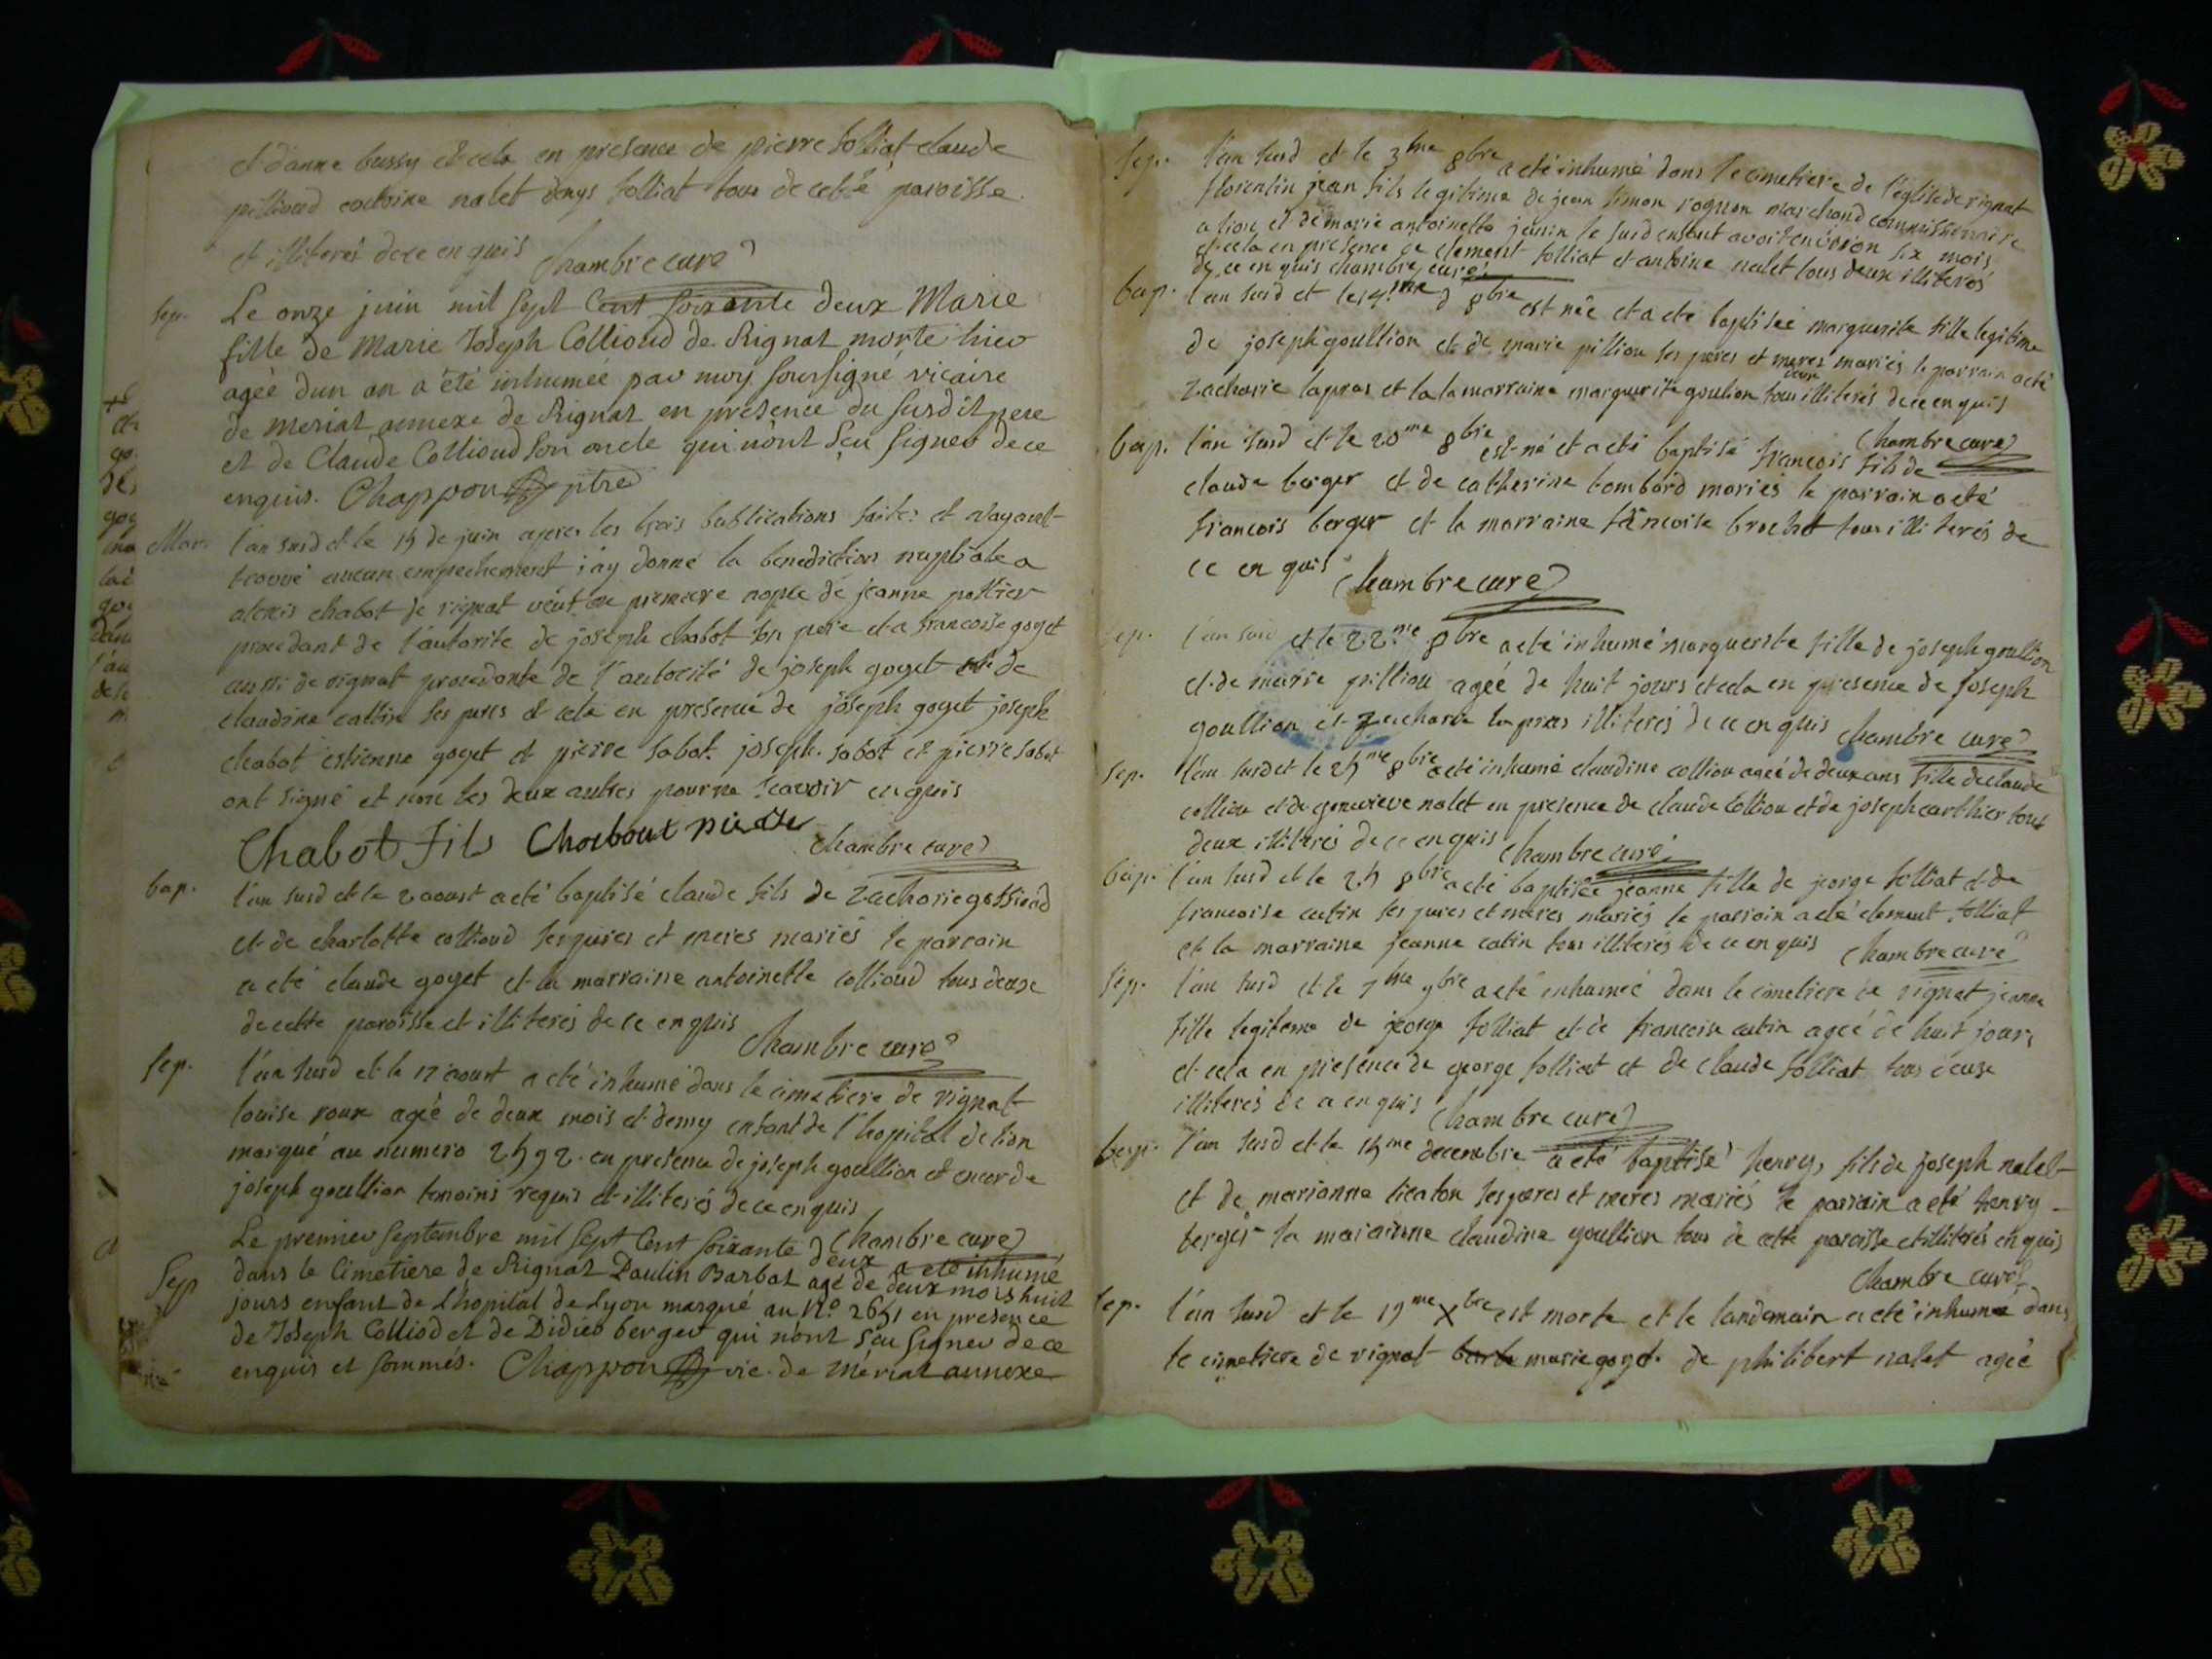 et d'anne bussy et cela en presence de pierre folliat claude
pillioud antoine nalet denys folliat tous de cette paroisse
et illiterés de ce enquis Chambre curé
Sep. Le onze juin mil sept Cent soixante deux Marie
fille de Marie Joseph Collioud de Rignat morte hier
agée d'un an a été inhumée par moy soussigné vicaire
de meriat annexe de Rignat en présence du susdit pere
et de Claude Collioud son oncle qui n'ont sçu signer de ce
enquis. Chappon ptre
Mar. l'an susd et le 15 de juin apres les trois publications faites et n'ayant
trouvé aucun empechement j'ay donné la benediction nuptiale a
alexis chabot de rignat veuf en premiere nopce de jeanne pottier
procedant de l'autorité de joseph chabot son pere et a francoise goyet
aussi de rignat procedante de l'autorité de joseph goyet et de
claudine cattin ses peres et cela en presence de joseph goyet joseph
chabot estienne goyet et pierre sabot. joseph. sabot et pierre sabot
ont signé et non les deux autres pour ne scavoir enquis
Chabot fils Chabout pierre
Chambre curé
bap. l'an susd et le 2 aoust a eté baptisé claude fils de zacharie
et de charlotte collioud ses peres et meres mariés le parrain
a eté claude goyet et la marraine antoinette collioud tous deux
de cette paroisse et illiterés de ce enquis
Chambre curé
Sep. l'an susd et le 17 aoust a eté inhumé dans le cimetiere de rignat
louise roux agée de deux mois et demy enfant de l'hopital de lion
marqué au numero 2592. en presence de joseph goullion et encor de
joseph goullion temoins requis et illiterés de ce enquis
Chambre curé
Sep Le premier septembre mil sept Cent soixante deux a été inhumé
dans le Cimetiere de Rignat Paulin Barbat agé de deux mois huit
jours enfant de L'hopital de Lyon marqué au N.o 2651 en presence
de Joseph Colliod et de Didier berger qui n'ont sçu signer de ce
enquis et sommés. Chappon vic. de meriat annexe
Sep. l'an susd et le 3me 8bre a eté inhumé dans le cimetiere de l'église de rignat
florentin jean fils legitime de jean simon rognon marchand commissionaire
a lion et de marie antoinette janin le susd enfant avoit environ six mois
et cela en presence de clement folliat et antoine nalet tous deux illiterés
de ce enquis chambre curé
bap. l'an susd et le 14me d 8bre est née et a eté baptisée marguerite fille legitime
de joseph goullion et de marie pilliou ses peres et meres mariés le parrain a eté
zacharie lapras et la la marraine marguerite goulion tous deux illiterés de ce enquis
Chambre curé
bap. l'an susd et le 20me 8bre est né et a eté baptisé françois fils de
claude berger et de catherine bombard mariés le parrain a eté
francois berger et la marraine francoise brochot tous illiterés de
ce enquis
Chambre curé
Sep. l'an susd et le 22me 8bre a eté inhumé marguerite fille de joseph goullion
et de marie pilliou agée de huit jours et cela en presence de joseph
goullion et zacharie lapras illiterés de ce enquis Chambre curé
Sep. l'an susd et le 25me 8bre a eté inhumé claudine colliou agée de deux ans fille de claude
colliou et de genevieve nalet en presence de claude colliou et de joseph carthier tous
deux illiterés de ce enquis Chambre curé
bap. l'an susd et le 25 8bre a eté baptisée jeanne fille de george folliat et de
francoise cutin ses peres et meres mariés le parrain a eté clement folliat
et la marraine jeanne catin tous illiterés de ce enquis Chambre curé
Sep. l'an susd et le 7me 9bre a eté inhumée dans le cimetiere de rignat jeanne
fille legitime de george folliat et de francoise cutin agée de huit jours
et cela en presence de george folliat et de claude folliat tous deux
illiterés de ce enquis Chambre curé
bap. l'an susd et le 15me decembre a eté baptisé henry, fils de joseph nalet
et de marianne ses peres et meres mariés le parrain a eté henry
berger la maraienne claudine goullion tous de cette paroisse et illiterés enquis
Chambre curé
Sep. l'an susd et le 19me Xbre est morte et le landemain a eté inhumé dans
le cimetiere de rignat marie goyet. de philibert nalet agée